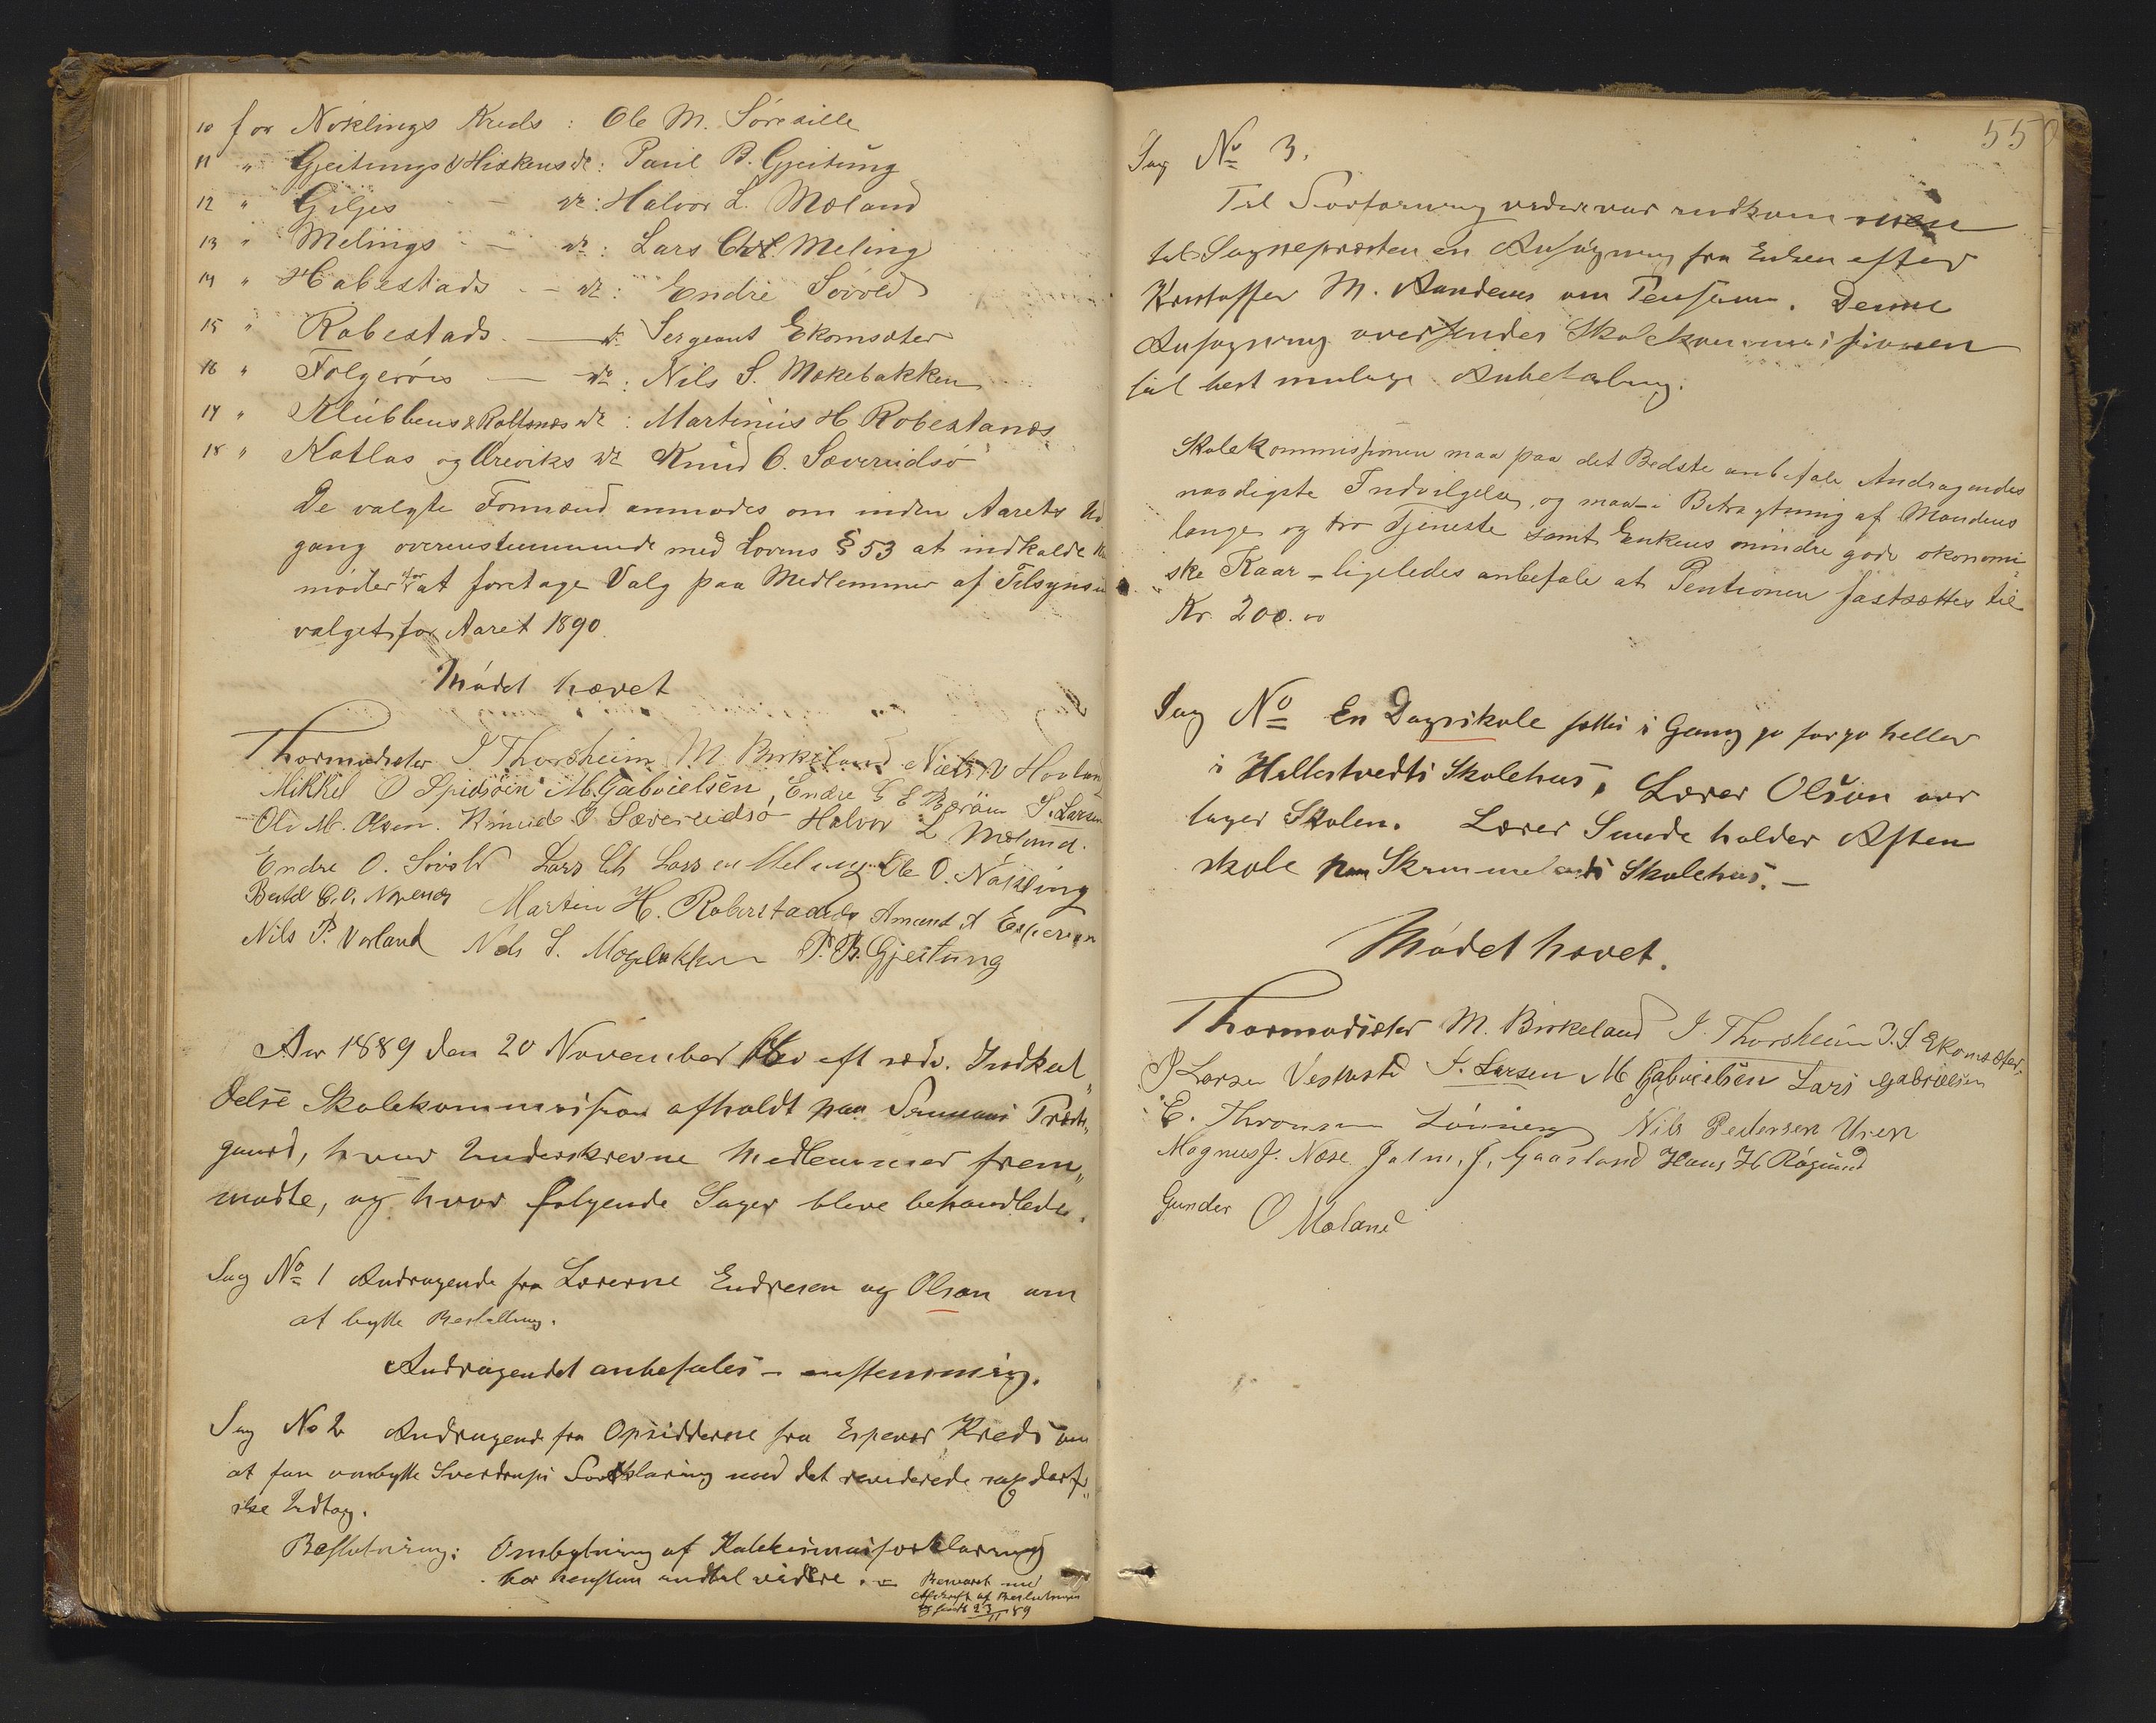 10 for Nøklings Kreds : Ole M. Søreaille
11 " Gjeitungs & Hiskens do : Paul B. Gjeitung
12 " Giljes — do : Halvor L. Mæland
13 " Melings — do : Lars Chr. Meling
14 " Habestads — do : Endre Søvold
15 " Robestads — do Sergeant Ekornsæter
16 " Folgerøes — do : Nils S. Mækebakken
17 " Klubbens & Rolfsnæs do : Martinius H Robestanæs
18 " Katlas og Urviks do Knud O. Sævereidsø
De valgte Formænd anmodes om inden Aarets Ud
gang overensstemmende med Lovens § 53 at indkalde
møder for at foretage Valg paa Medlemmer af Tilsyns
valget for Aaret 1890.
Mødet hævet
Thormodsæter I Thorsheim M. Birkeland Niels N Hovland
Mikkel O Spidsøen M. Gabrielsen, Endre E S. Larsen
Ole M. Olsen. Knud O Sævereidsø Halvor L Mæland.
Endre O. Søvold Lars Ch Larsen Meling Ole O. Nøkling
Martin H. Roberstad Amund A Espevær
Nils P. Vorland Nils S. P. B. Gjeitung
Aar 1889 den 20 November blev eft. sædv. Indkal„
delse Skolekommission afholdt paa Præste„
gaard, hvor Underskrevne Medlemmer frem„
mødte, og hvor følgende Sager bleve behandlede.
Sag No 1 Andragende fra Lærerne Endresen og Olson om
at bytte Bestilling.
Andragendet anbefales – enstemmig.
Sag No 2 Andragende fra Opsidderne fra Espevær Kreds om
at faa ombytte Sverdrups Forklaring med det reviderede
ske Udtog.
Beslutning: Ombytning af Katekismusforklaring
bør henstaa indtil videre. – Besvaret med
Afskrift af Beslutningen
23/11 89
550
Sag No 3.
Til Sognepræsten en Ansøgning fra Enken efter
Kristoffer M. Aandens om Pension. Denne
Ansøgning oversendes Skolekommissionen
til best mulige Anbefaling.
Skolekommissionen maa paa det Bedste anbefale Andragendes
naadigste Indvilgelse, og maa – i Betragtning af Mandens
lange og tro Tjeneste samt Enkens mindre gode økonomi„
ske Kaar – ligeledes anbefale at Pentionen fastsættes til
Kr. 200.00
Sag No En Dagskole sættes i Gang jo før jo heller
i Hallestvedts Skolehus, Lærer Olson over
tager Skolen. Lærer Sunde holder Aften
skole paa Skrummelands Skolehus. –
Mødet hævet.
Thormodsæter M. Birkeland I. Thorsheim I. S. Ekornsæter.
P Larsen S. Larsen M Gabrielsen Lars Gabrielsen
E. Thronsen Lønning Nils Pedersen Uren
Magnus J. Næse. Joh. J. Gaasland Hans H. Røgsund
Gunder O Mæland